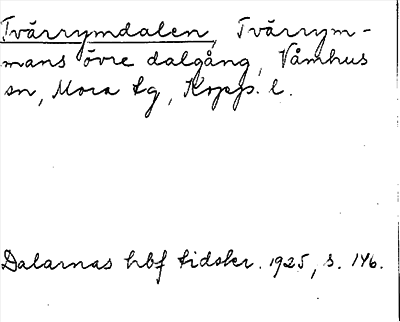 Tvärrymdalen, Tvärrym-
mans övre dalgång, Våmhus
sn, Mora tg, Kopp. l.
Dalarnas hbf tidskr. 1925, s. 146.